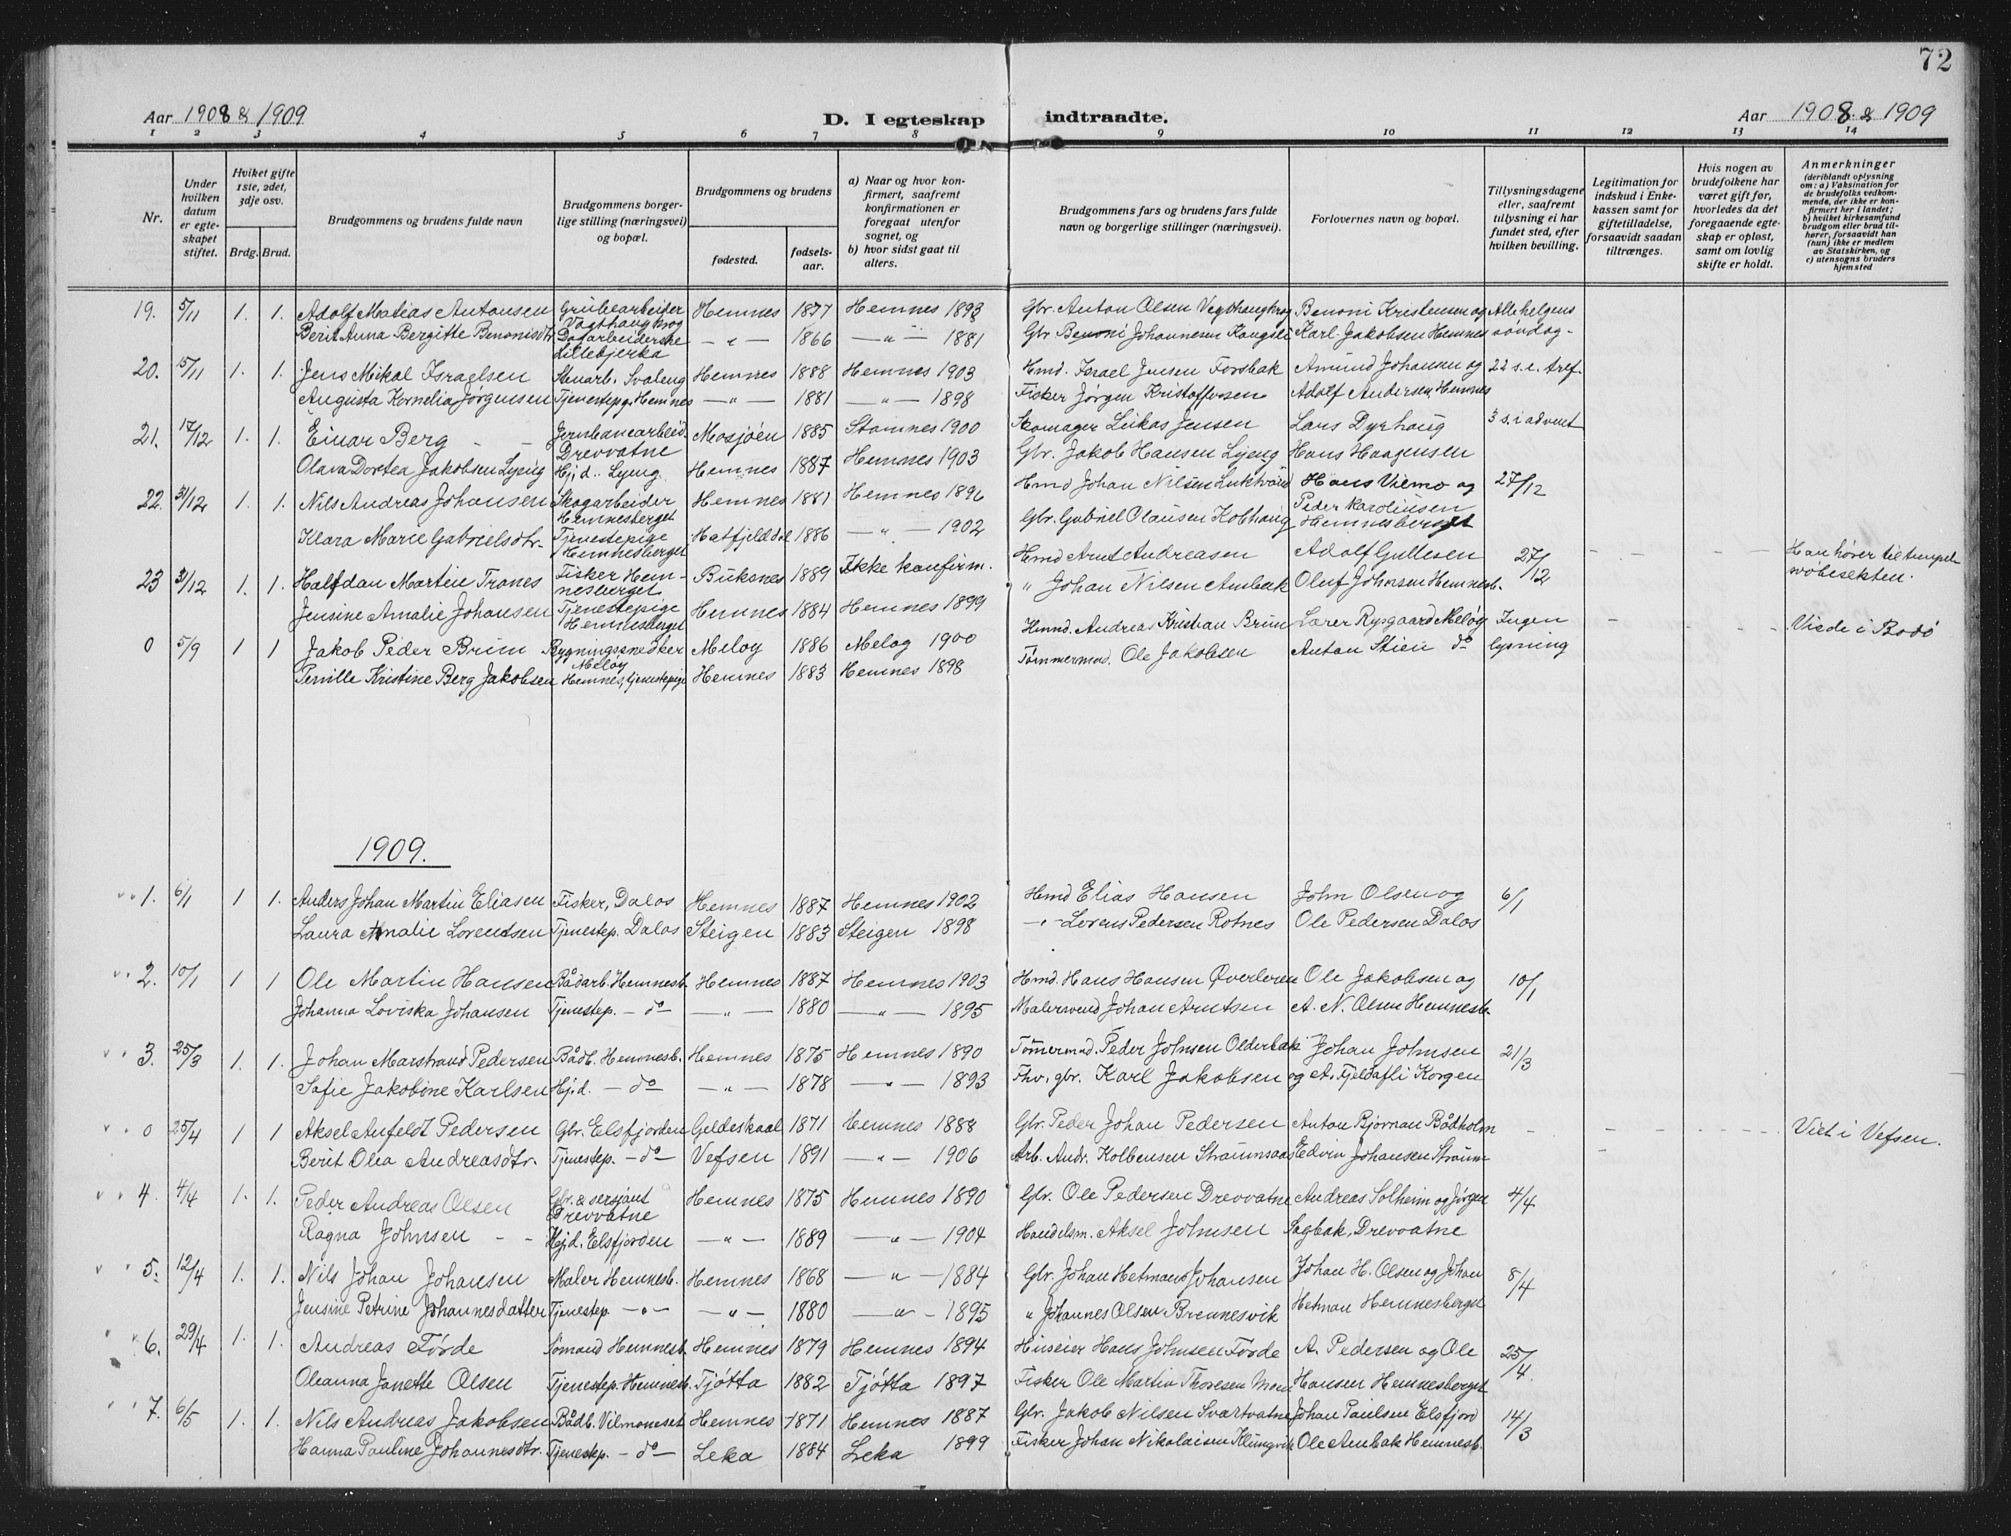 72
Aar 1908 & 1909
D. I egteskap
indtraadte.
Aar 1908 & 1909
1 2 3 4 5 6 7 8 9 10 11 12 13 14
Nr.
Under hvilken datum er egteskapet stiftet.
Hviket gifte 1ste, 2det, 3dje osv.
Brdg. Brud.
Brudgommens og brudens fulde navn
Brudgommens borgerlige stilling (næringsvei) og bopæl.
Brudgommens og brudens
fødested.
fødselsaar.
a) Naar og hvor konfirmert, saafremt konfirmationen er foregaat utenfor sognet, og
b) hvor sidst gaat til alters.
Brudgommens fars og brudens fars fulde navn og borgerlige stillinger (næringsvei).
Forlovernes navn og bopæl.
Tillysningsdagene eller, saafremt tillysning ei har fundet sted, efter hvilken bevilling.
Legitimation for indskud i Enkekassen samt for giftetilladelse, forsaavidt saadan tiltrænges.
Hvis nogen av brudefolkene har været gift før, hvorledes da det foregaaende egteskap er opløst, samt om lovlig skifte er holdt.
Anmerkninger (deriblandt oplysning om: a) Vaksination for de brudefolks vedkommende, der ikke er konfirmert her i landet; b) hvilket kirkesamfund brudgom eller brud tilhører, forsaavidt han (hun) ikke er medlem av Statskirken, og c) utensogns bruders hjemsted
19. 5/11 1. 1. Adolf Matias Antonsen Grubearbeider Vagthaugkrog Hemnes 1877 Hemnes 1893 Gbr. Anton Olsen Vegthaugkrog Benoni Kristensen og Allehelgens
Berit Anna Bergitte Benonisdtr Dagarbeiderske Lillebjerka — " — 1866 — " — 1881 Gbr Benoni Johannesen Kangsli Karl Jakobsen Hemnes söndag
20. 15/11 1. 1. Jens Mikal Israelsen Stenarb. Svaleng Hemnes 1888 Hemnes 1903 Hmd. Israel Jensen Forsbak Amund Johansen og 22 s. e. Tref.
Augusta Kornelia Jörgensen Tjenestepg. Hemnes — " — 1881 — " — 1898 Fisker Jørgen Kristoffersen Adolf Andersen, Hemnes
21. 17/12 1. 1. Einar Berg Jernbanearbeid. Drevvatne Mosjöen 1885 Stamnes 1900 Skomager Lukas Jensen Lars Dyrhaug 3 s. i advent
Olava Dortea Jakobsen Ljeng Hj.d. Ljeng Hemnes 1887 Hemnes 1903 Gbr. Jakob Hansen Ljeng Hans Haagensen
22. 31/12 1. 1. Nils Andreas Johansen Skogarbeider Hemnesberget Hemnes 1881 Hemnes 1896 Hmd Johan Nilsen Luktvand Hans Vilmo og Peder Karoliusen 27/12
Klara Marie Gabrielsdtr. Tjenestepige Hemnesberget Hatfjelddal 1886 — " — 1902 Gbr. Gabriel Olausen Kobhaug Hemnesberget
23 31/12 1. 1. Halfdan Martin Tranes Fisker Hemnesberget Buksnes 1889 Ikke konfirm. Hmd Arnt Andreasen Adolf Gullesen 27/12 Han hører til tungebevægelsen.
Jensine Amalie Johansen Tjenestepige Hemnesberget Hemnes 1884 Hemnes 1899 " Johan Nilsen Aanbak Oluf Johnsen Hemnesb.
0 5/9 1 1 Jakob Peder Brun Bygningssnedker Meloy Meloy 1886 Meloy 1900 Hmd. Andreas Kristian Brun Lærer Rysgaard Meløy Ingen lysning Viede i Bodö
Pernille Kristine Berg Jakobsen Hemnes, tjenestepige Hemnes 1883 Hemnes 1898 Tømmermd. Ole Jakobsen Anton Stien do
1909.
1. 6/1 1 1. Anders Johan Martin Eliasen Fisker, Dalos Hemnes 1887 Hemnes 1902 Hmd Elias Hansen John Olsen og 6/1
Laura Amalie Lorentsen Tjenestep. Dalos Steigen 1883 Steigen 1898 — " — Lorens Pedersen Rotnes Ole Pedersen Dalos
2. 10/1 1 1 Ole Martin Hansen Bådarb. Hemnesb. Hemnes 1887 Hemnes 1903 Hmd. Hans Hansen Øverleren Ole Jakobsen og 10/1
Johanna Loviska Johansen Tjenestep. — do — — " — 1880 — " — 1895 Malersvend Johan Arntsen A. N. Olsen Hemnesb.
3. 25/3 1. 1. Johan Marstrand Pedersen Bådb. Hemnesb. Hemnes 1875 Hemnes 1890 Tømermd. Peder Johnsen Olderbak Johan Johnsen 21/3
Sofie Jakobine Karlsen Hj.d. — do — " — 1878 — " — 1893 Fhv. gbr. Karl Jakobsen og A. Fjeldafli Korgen
0 25/4 1 1 Aksel Anfeldt Pedersen Gbr. Elsfjorden Geldeskaal 1871 Hemnes 1888 Gbr. Peder Johan Pedersen Anton Bjørnan Bådholm Viet i Vefsen.
Berit Olea Andreasdtr. Tjenestep. — do — Vefsen 1891 — " — 1906 Arb. Andr. Kolbensen Straumsaas Edvin Johansen Straum
4. 4/4 1. 1. Peder Andreas Olsen Gbr. & sersjant Drevvatne Hemnes 1875 Hemnes 1890 Gbr. Ole Pedersen Drevvatne Andreas Solheim og Jörgen 4/4
Ragna Johnsen Hj.d. Elsfjorden — " — 1889 — " — 1904 Handelsm. Aksel Johnsen Sagbak, Drevvatne
5. 12/4 1. 1. Nils Johan Johansen Maler Hemnesb. Hemnes 1868 — " — 1884 Gbr. Johan Hetman Johansen Johan H. Olsen og Johan 8/4
Jensine Petrine Johannesdatter Tjenestep. — " — — " — 1880 — " — 1895 " Johannes Olsen Brennesvik Hetman Hemnesberget
6. 29/4 1. 1. Andreas Förde Sømand Hemnesb. Hemnes 1879 Hemnes 1894 Huseier Hans Johnsen Förde A. Pedersen og Ole 25/4.
Oleanna Janette Olsen Tjenestep. Hemnesb. Tjøtta 1882 Tjøtta 1897 Fisker Ole Martin Thoresen Hansen Hemnesberget
7. 6/5 1. 1. Nils Andreas Jakobsen Bådb. Vilmoneset Hemnes 1871 Hemnes 1887 Gbr. Jakob Nilsen Svartvatne Johan Paulsen Elsfjord 14/3
Hanna Pauline Johannesdtr. Tjenestep. — do — Leka 1884 Leka 1899 Fisker Johan Nikolaisen Klungvik Ole Aanbak Hemnesb.